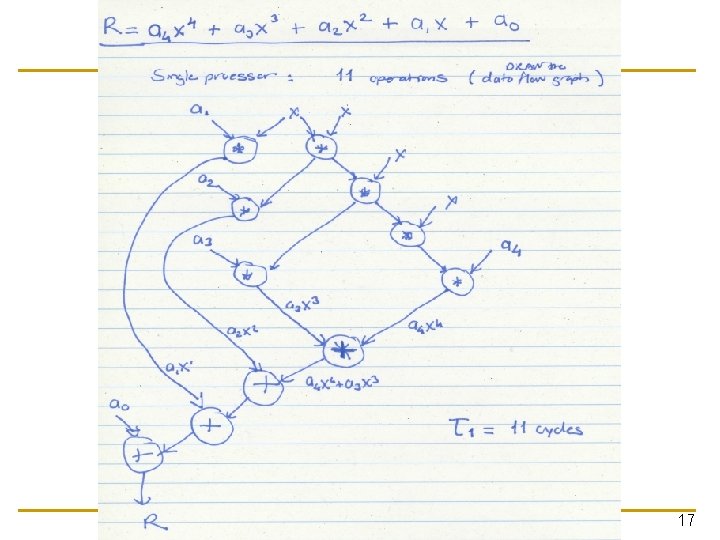 R = a₄x⁴ + a₃x³ + a₂x² + a₁x + a₀
Single processor : 11 operations ( DRAW the data flow graph )
a₁ x x
* *
x
a₂ *
* x
a₃ *
a₄
* *
a₃x³
a₂x² a₄x⁴
+
a₁x¹ + a₄x⁴+a₃x³
a₀
+ T₁ = 11 cycles
+
R
17